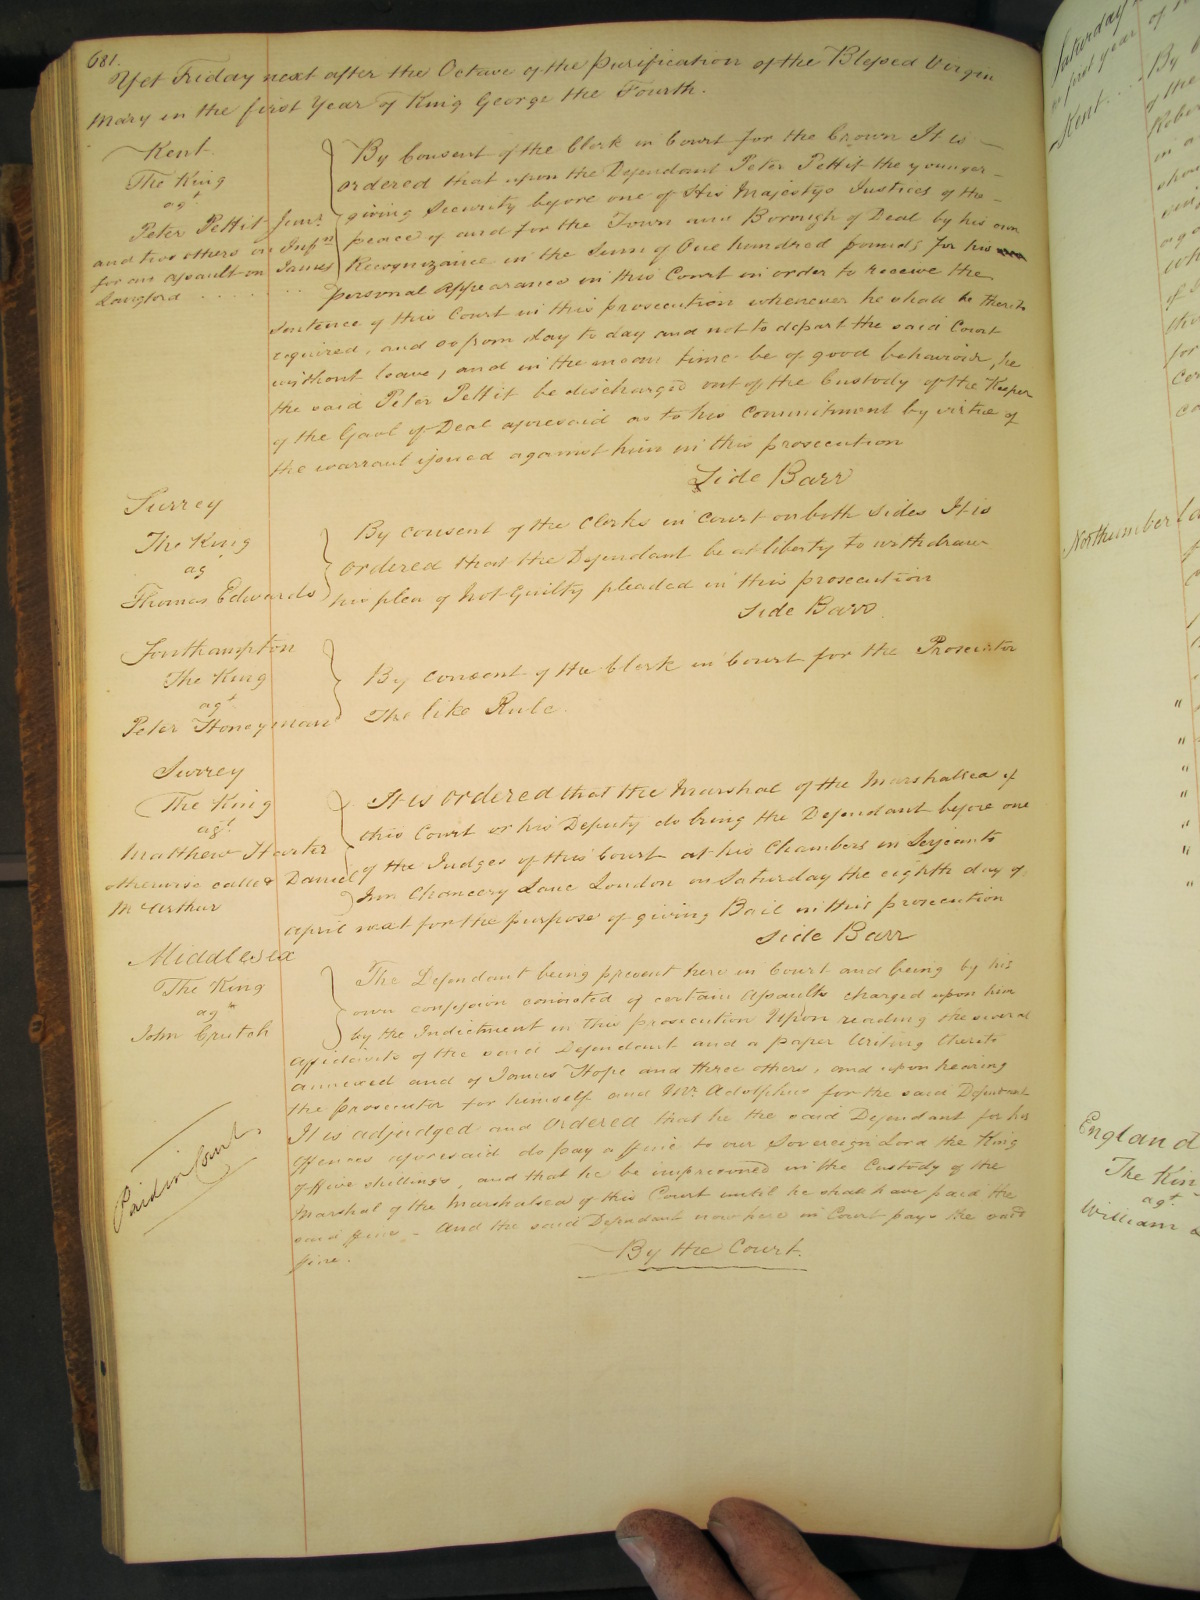 681.
Yet Friday next after the Octave of the Purification of the Blessed Virgin
Mary in the first Year of King George the Fourth.
Kent
The King
agt
Peter Pettit Junr
and two others on Infn
for an assault on James
Langford
By Consent of the Clerk in Court for the Crown It is
ordered that upon the Defendant Peter Pettit the younger
giving Security before one of His Majestys Justices of the
peace of and for the Town and Borough of Deal by his own
Recognizance in the Sum of One hundred pounds for his
personal Appearance in this Court in order to receive the
sentence of this Court in this prosecution whenever he shall be thereto
required, and so from day to day and not to depart the said Court
without leave, and in the mean time be of good behaviour, he
the said Peter Pettit be discharged out of the Custody of the Keeper
of the Gaol of Deal aforesaid as to his commitment by virtue of
the warrant issued against him in this prosecution
Side Barr
Surrey
The King
ag
Thomas Edwards
By consent of the Clerks in Court on both sides It is
ordered that the Defendant be at liberty to withdraw
his plea of Not Guilty pleaded in this prosecution
Side Barr
Southampton
The King
agt
Peter Honeyman
By consent of the Clerk in Court for the Prosecutor
The like Rule.
Surrey
The King
agt.
Matthew Harter
otherwise called Daniel
McArthur
It is ordered that the Marshal of the Marshalsea of
this Court or his Deputy do bring the Defendant before one
of the Judges of this Court at his Chambers in Serjeants
Inn Chancery Lane London on Saturday the eighth day of
April next for the purpose of giving Bail in this prosecution
Side Barr
Middlesex
The King
ag
John Crutch
The Defendant being present here in Court and being by his
own confession convicted of certain Assaults charged upon him
by the Indictment in this prosecution Upon reading the several
affidavits of the said Defendant and a paper Writing thereto
annexed and of James Hope and three others, and upon hearing
the prosecutor for himself and Mr. Adolphus for the said Defendant
It is adjudged and Ordered that he the said Defendant for his
Offences aforesaid do pay a ffine to our Sovereign Lord the King
of ffive shillings, and that he be imprisoned in the Custody of the
Marshal of the Marshalsea of this Court until he shall have paid the
said ffine. - And the said Defendant now here in Court pays the said
ffine.
Paid in Court.
By the Court.
Saturday
Kent
By
of the
Rober
in a
Northumberla
England
The Kin
agt
William